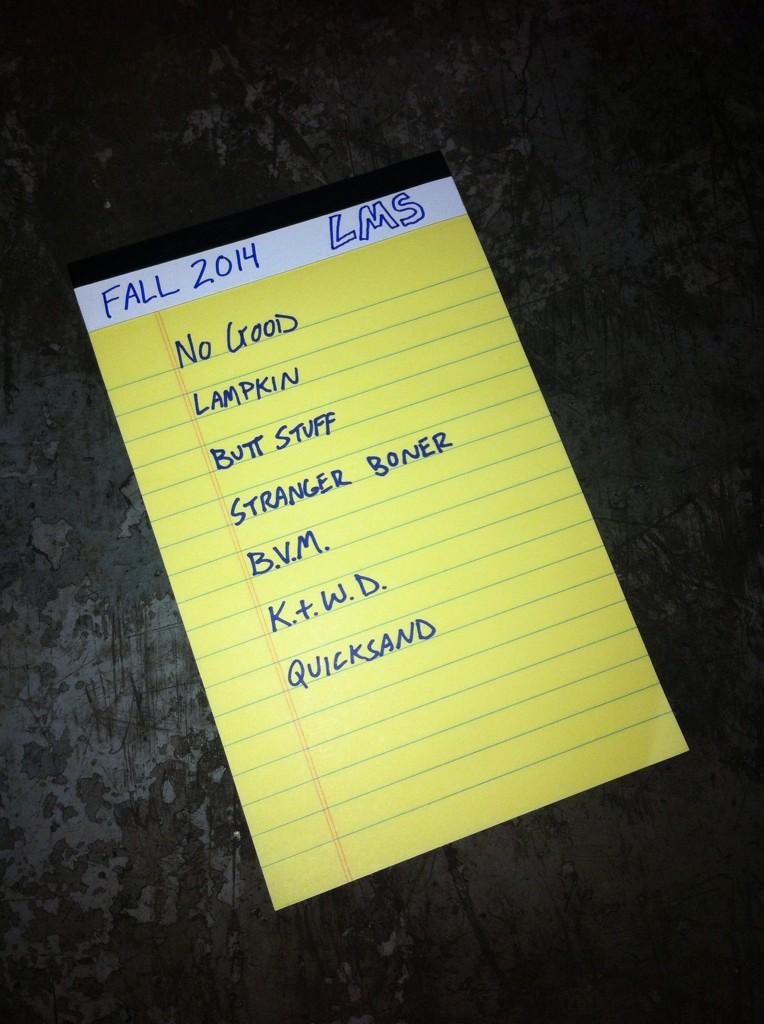 FALL 2014 LMS
NO GOOD
LAMPKIN
BUTT STUFF
STRANGER BONER
B.V.M.
K.+.W.D.
QUICKSAND